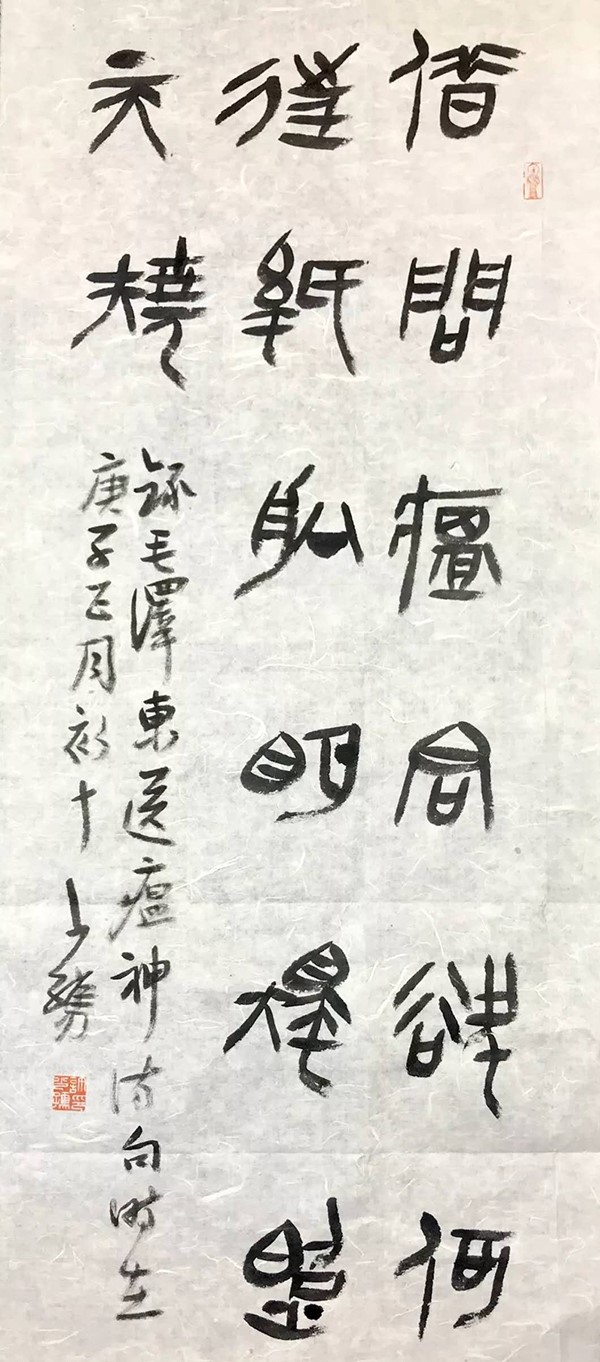 借問瘟君欲何
往紙船明燭照
天燒
錄毛澤東送瘟神詩句時在
庚子正月初十